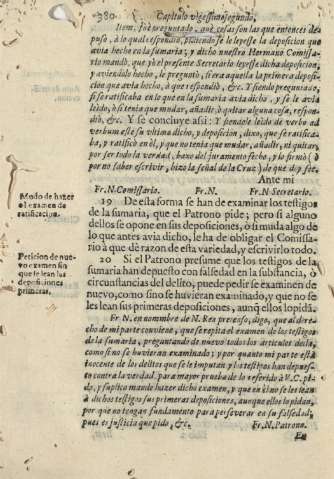 380 Capitulo vigessimo segundo,
Item, fuè preguntado, què cosas son las que entonces depuso, à lo qual respondiò, pidiendo se le leyesse la deposicion que
avia hecho en la sumaria; y dicho nuestro Hermano Comissario mandò, que yo el presente Secretario leyesse dicha deposicion,
y aviendo leìdo, le preguntò, si era aquella la primera deposicion que avia hecho, à que respondiò, &c. Y siendo preguntado,
si se ratificaba en lo que en la sumaria avia dicho, y se le avia
leìdo, si tenia que mudar, añadir, ò quitar alguna cosa, respondiò, &c. Y se concluye assi: Y siendole leìdo de verbo ad
verbum este su vltimo dicho, y deposicion, dixo, que se ratificaba, y ratificò en èl, y que no tenia que mudar, añadir, ni quitar,
por ser todo la verdad, baxo del juramento fecho, y lo firmò (ò
por no saber escrivir, hizo la señal de la Cruz) de que doy fee.
Ante mi
Fr. N. Comissario. Fr. N. Fr. N. Secretario.
Modo de hazer
el examen de
ratificacion.
19 De esta forma se han de examinar los testigos
de la sumaria, que el Patrono pide; pero si alguno
dellos se opone en sus deposiciones, ò si muda algo de
lo que antes avia dicho, le ha de obligar el Comissario à que dè razon de esta variedad, y escrivirlo todo.
Peticion de nuevo examen sin
que se lean las
deposiciones
primeras.
20 Si el Patrono presume que los testigos de la
sumaria han depuesto con falsedad en la substancia, ò
circunstancias del delito, puede pedir se examinen de
nuevo, como si no se huvieran examinado, y que no se
les lean sus primeras deposiciones, aunq̃ ellos lo pidã.
Fr. N. en nombre de N. Reo preso, digo, que al derecho de mi parte conviene, que se repita el examen de los testigos
de la sumaria, preguntando de nuevo todos los articulos della,
como si no se huvieran examinado; y por quanto mi parte està
inocente de los delitos que se le imputan y los testigos han depuesto contra la verdad, para mayor prueba de lo referido à V. C. pido, y suplico mande hazer dicho examen, y que en èl no se les lean
à dichos testigos sus primeras deposiciones, aunque ellos lo pidan,
por que no tengan fundamento para perseverar en su falsedad,
pues es justicia que pido, &c. Fr. N. Patrono.
En